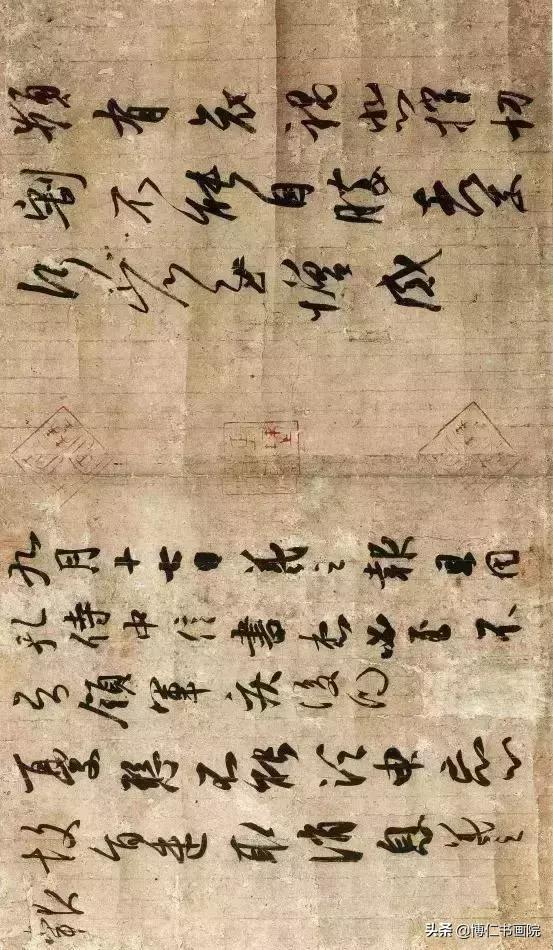 頻有哀禍悲摧切
割不能自勝奈何奈
何省慰增感
九月十七日羲之報且因
孔侍中信書想必至不
知領軍疾後問
憂懸不能須臾忘心
故旨遣取消息羲之
報
头条 @博仁书画院